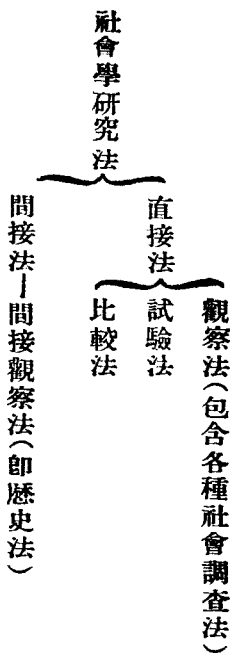 社會學研究法
直接法
觀察法(包含各種社會調查法)
試驗法
比較法
間接法—間接觀察法(卽歷史法)